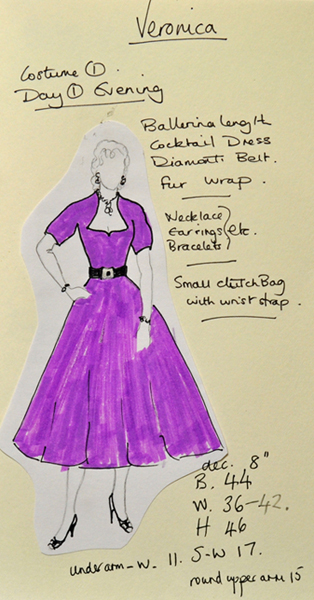 Veronica
Costume ①.
Day ① Evening
Ballerina length
Cocktail Dress
Diamonti Belt.
Fur Wrap.
Necklace
Earrings } etc.
Bracelets
Small clutch Bag
with wrist strap.
dec. 8"
B. 44
W. 36-42.
H 46
underarm-W. 11. S-W 17.
round upper arm 15